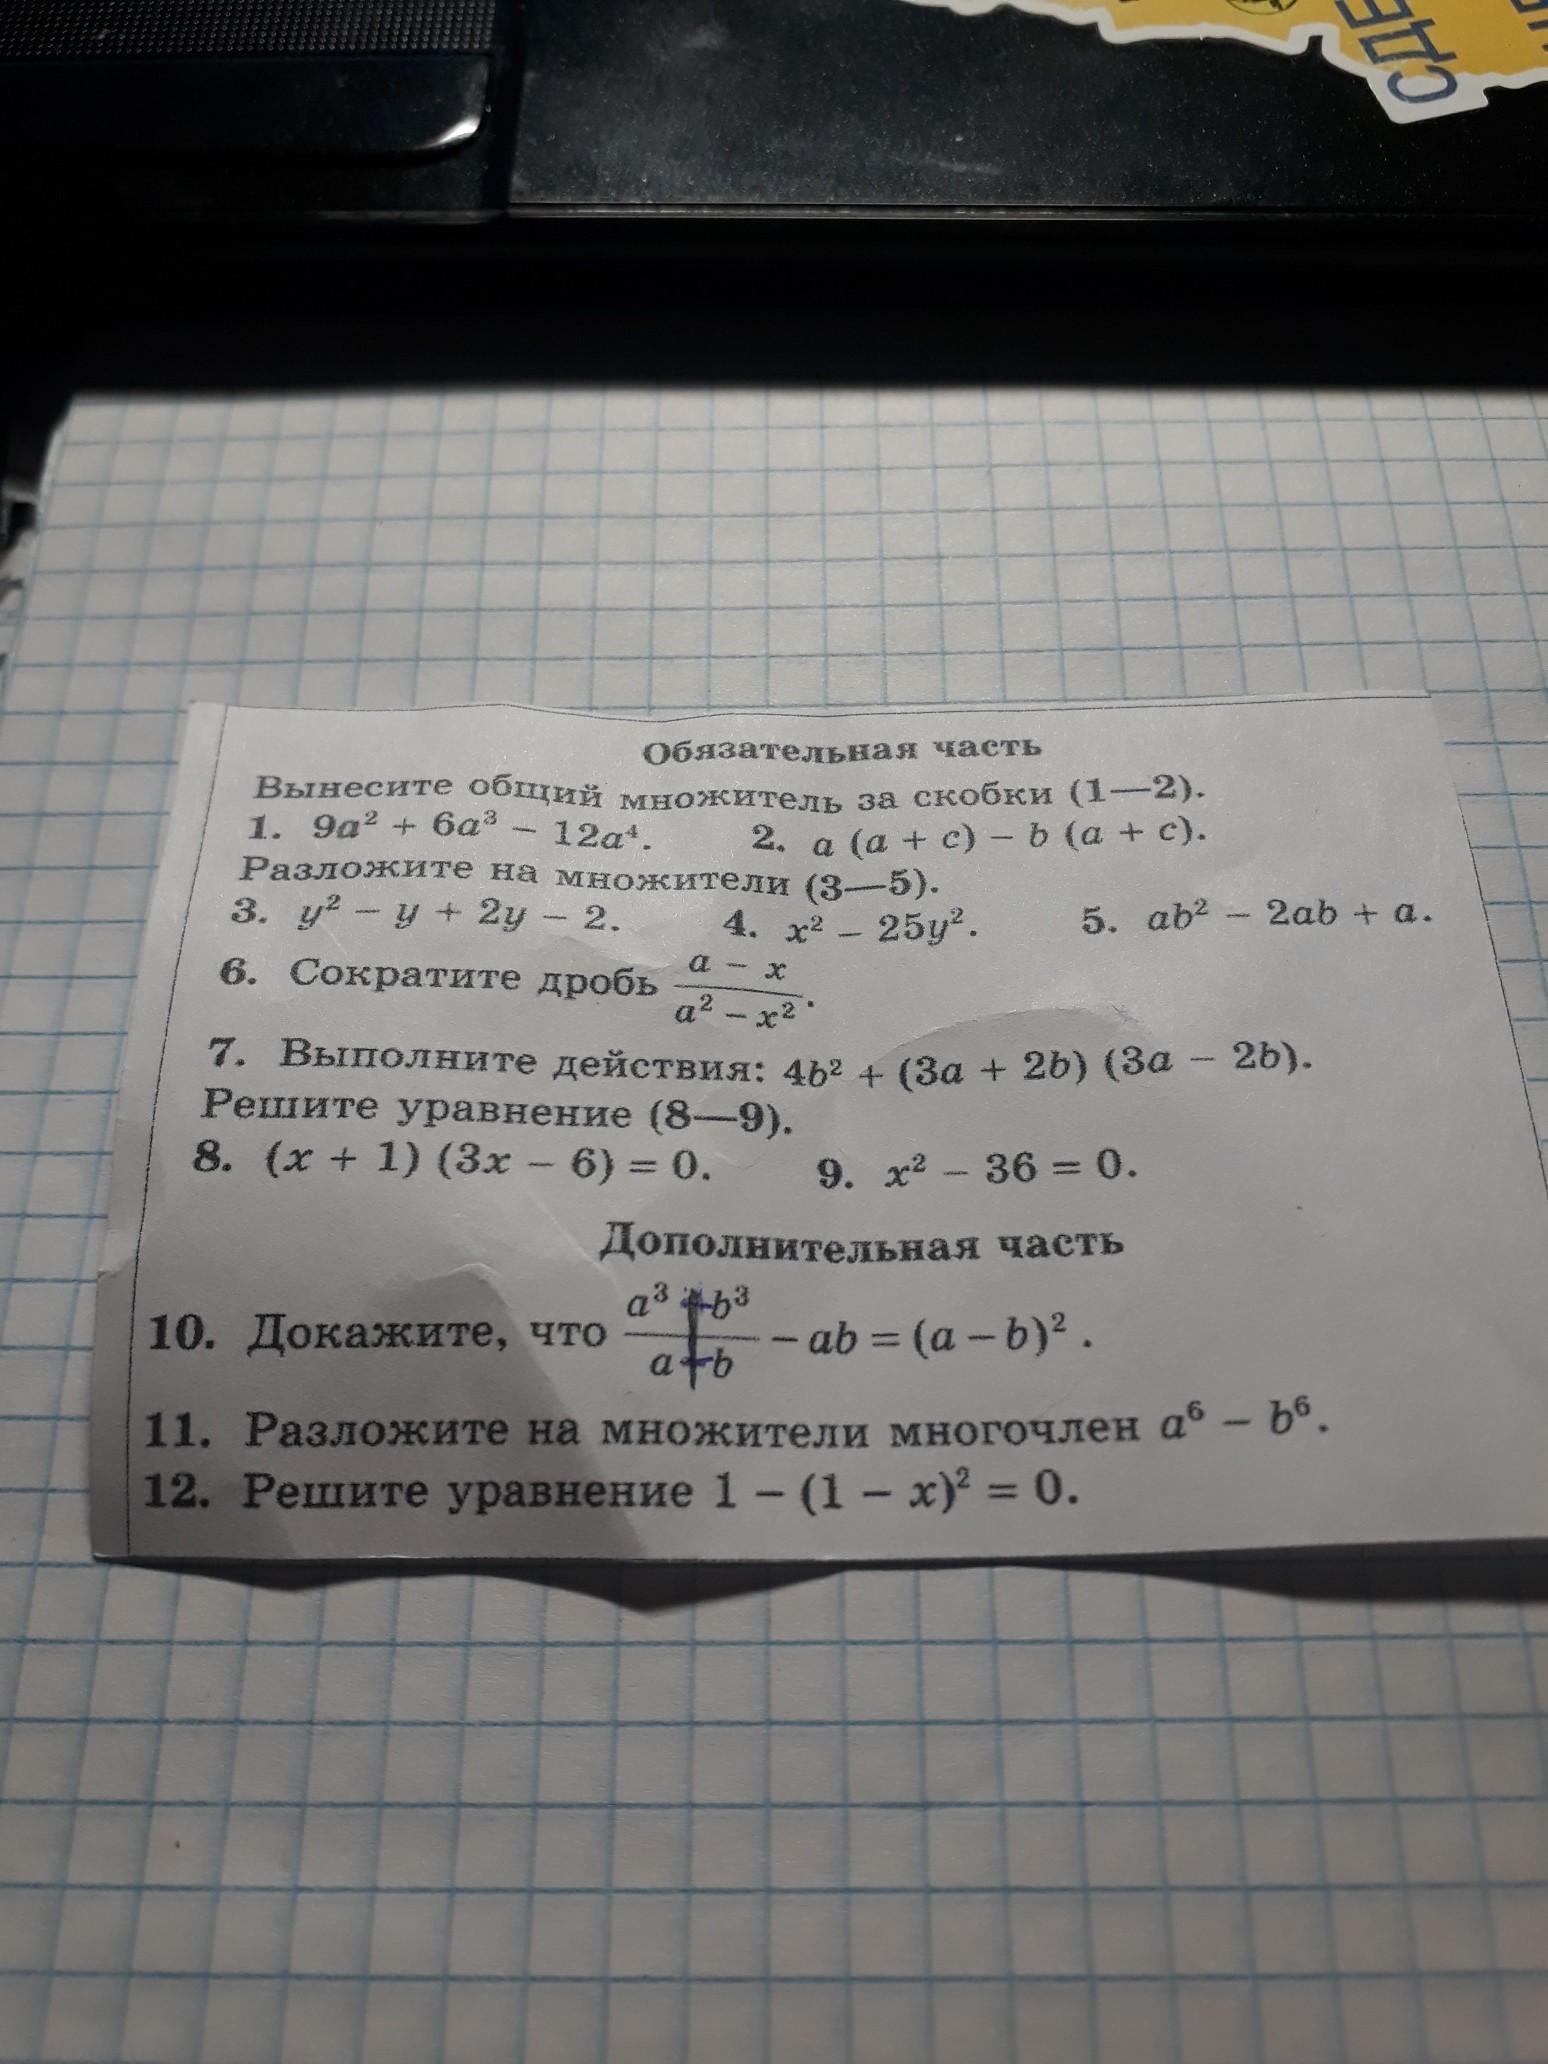 СДЕ
Обязательная часть
Вынесите общий множитель за скобки (1—2).
1. 9a² + 6a³ − 12a⁴. 2. a (a + c) − b (a + c).
Разложите на множители (3—5).
3. y² − y + 2y − 2. 4. x² − 25y². 5. ab² − 2ab + a.
6. Сократите дробь (a − x)/(a² − x²).
7. Выполните действия: 4b² + (3a + 2b) (3a − 2b).
Решите уравнение (8—9).
8. (x + 1) (3x − 6) = 0. 9. x² − 36 = 0.
Дополнительная часть
10. Докажите, что (a³ + b³)/(a + b) − ab = (a − b)².
11. Разложите на множители многочлен a⁶ − b⁶.
12. Решите уравнение 1 − (1 − x)² = 0.